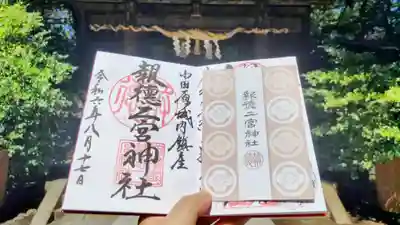 小田原城内鎮座
報徳二宮神社
令和六年八月十七日
報徳二宮神社